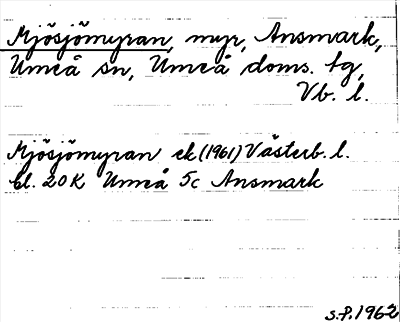 Mjösjömyran, myr, Ansmark,
Umeå sn, Umeå doms. tg,
Vb. l.
Mjösjömyran ek (1961) Västerb. l.
bl. 20K Umeå 5c Ansmark
S.P. 1962